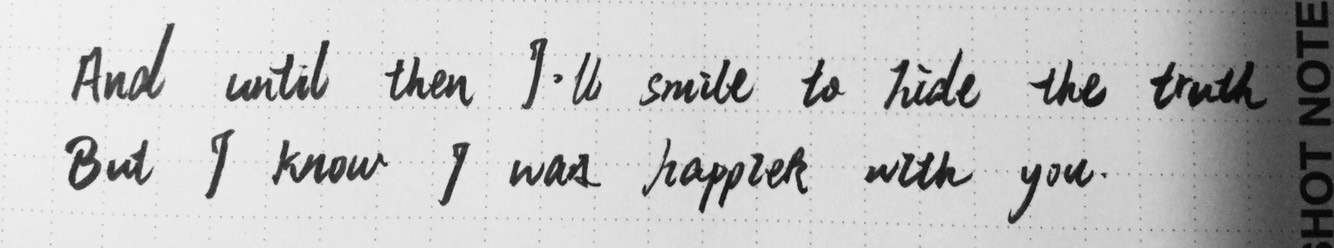 And until then I'll smile to hide the truth
But I know I was happier with you.
SHOT NOTE